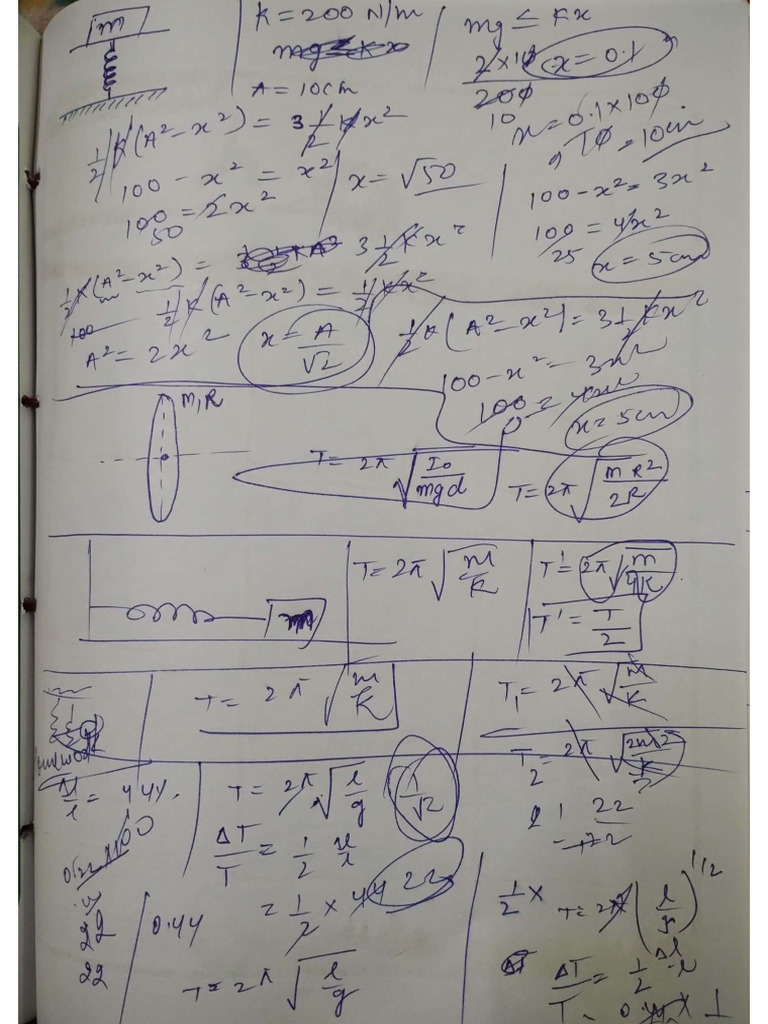 m
K = 200 N/m
mg ≤ Kx
A = 10cm
mg ≤ Kx
2×10
200
10
x = 0.1
x = 0.1×100
= 10cm
1/2 K(A²-x²) = 3 1/2 Kx²
100 - x² = x²
100 = 2x²
50
x = √50
100-x² = 3x²
100 = 4x²
25
x = 5cm
1/2 K(A²-x²) = 3 1/2 Kx²
1/2 K(A²-x²) = 1/2 Kx²
A² = 2x²
x = A/√2
1/2 K(A²-x²) = 3 1/2 Kx²
100-x² = 3x²
100 = 4x²
x = 5cm
m, R
T = 2π √(I₀/mgd)
T = 2π √(mR²/2R)
T = 2π √(m/K)
T' = 2π √(m/4K)
T' = T/2
T = 2π √(m/K)
T₁ = 2π √(m/K)
T₂ = 2π
1/√2
T = 2π √(l/g)
ΔT/T = 1/2
= 1/2 × 44
22
T = 2π √(l/g)
0.44
22
22
22
1/2 ×
T = 2π (l/g)^1/2
ΔT/T = 1/2 Δl/l